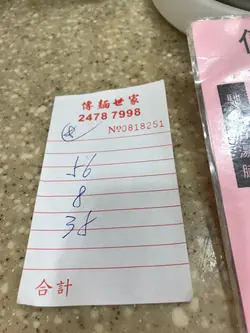 傳麵世家
2478 7998
Nº0818251
56
8
38
合計